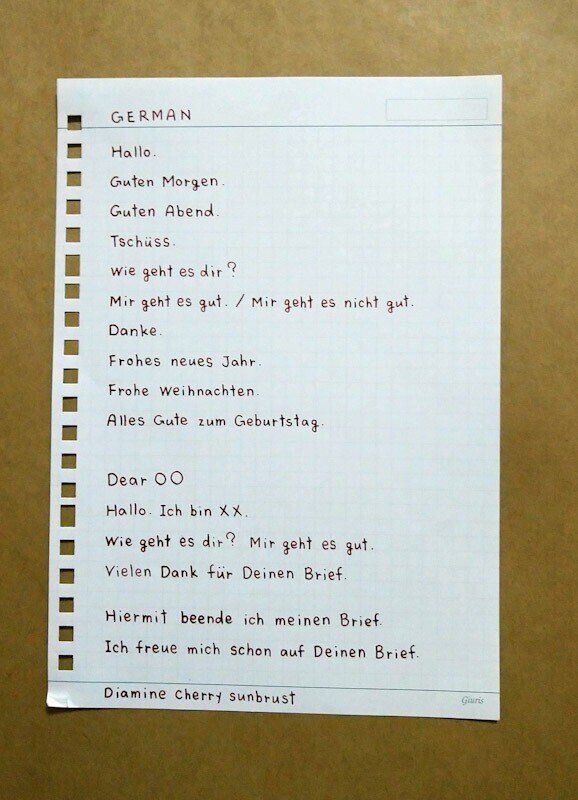 GERMAN
Hallo.
Guten Morgen.
Guten Abend.
Tschüss.
Wie geht es dir?
Mir geht es gut. / Mir geht es nicht gut.
Danke.
Frohes neues Jahr.
Frohe Weihnachten.
Alles Gute zum Geburtstag.
Dear OO
Hallo. Ich bin XX.
Wie geht es dir? Mir geht es gut.
Vielen Dank für Deinen Brief.
Hiermit beende ich meinen Brief.
Ich freue mich schon auf Deinen Brief.
Diamine Cherry sunbrust
Giuris